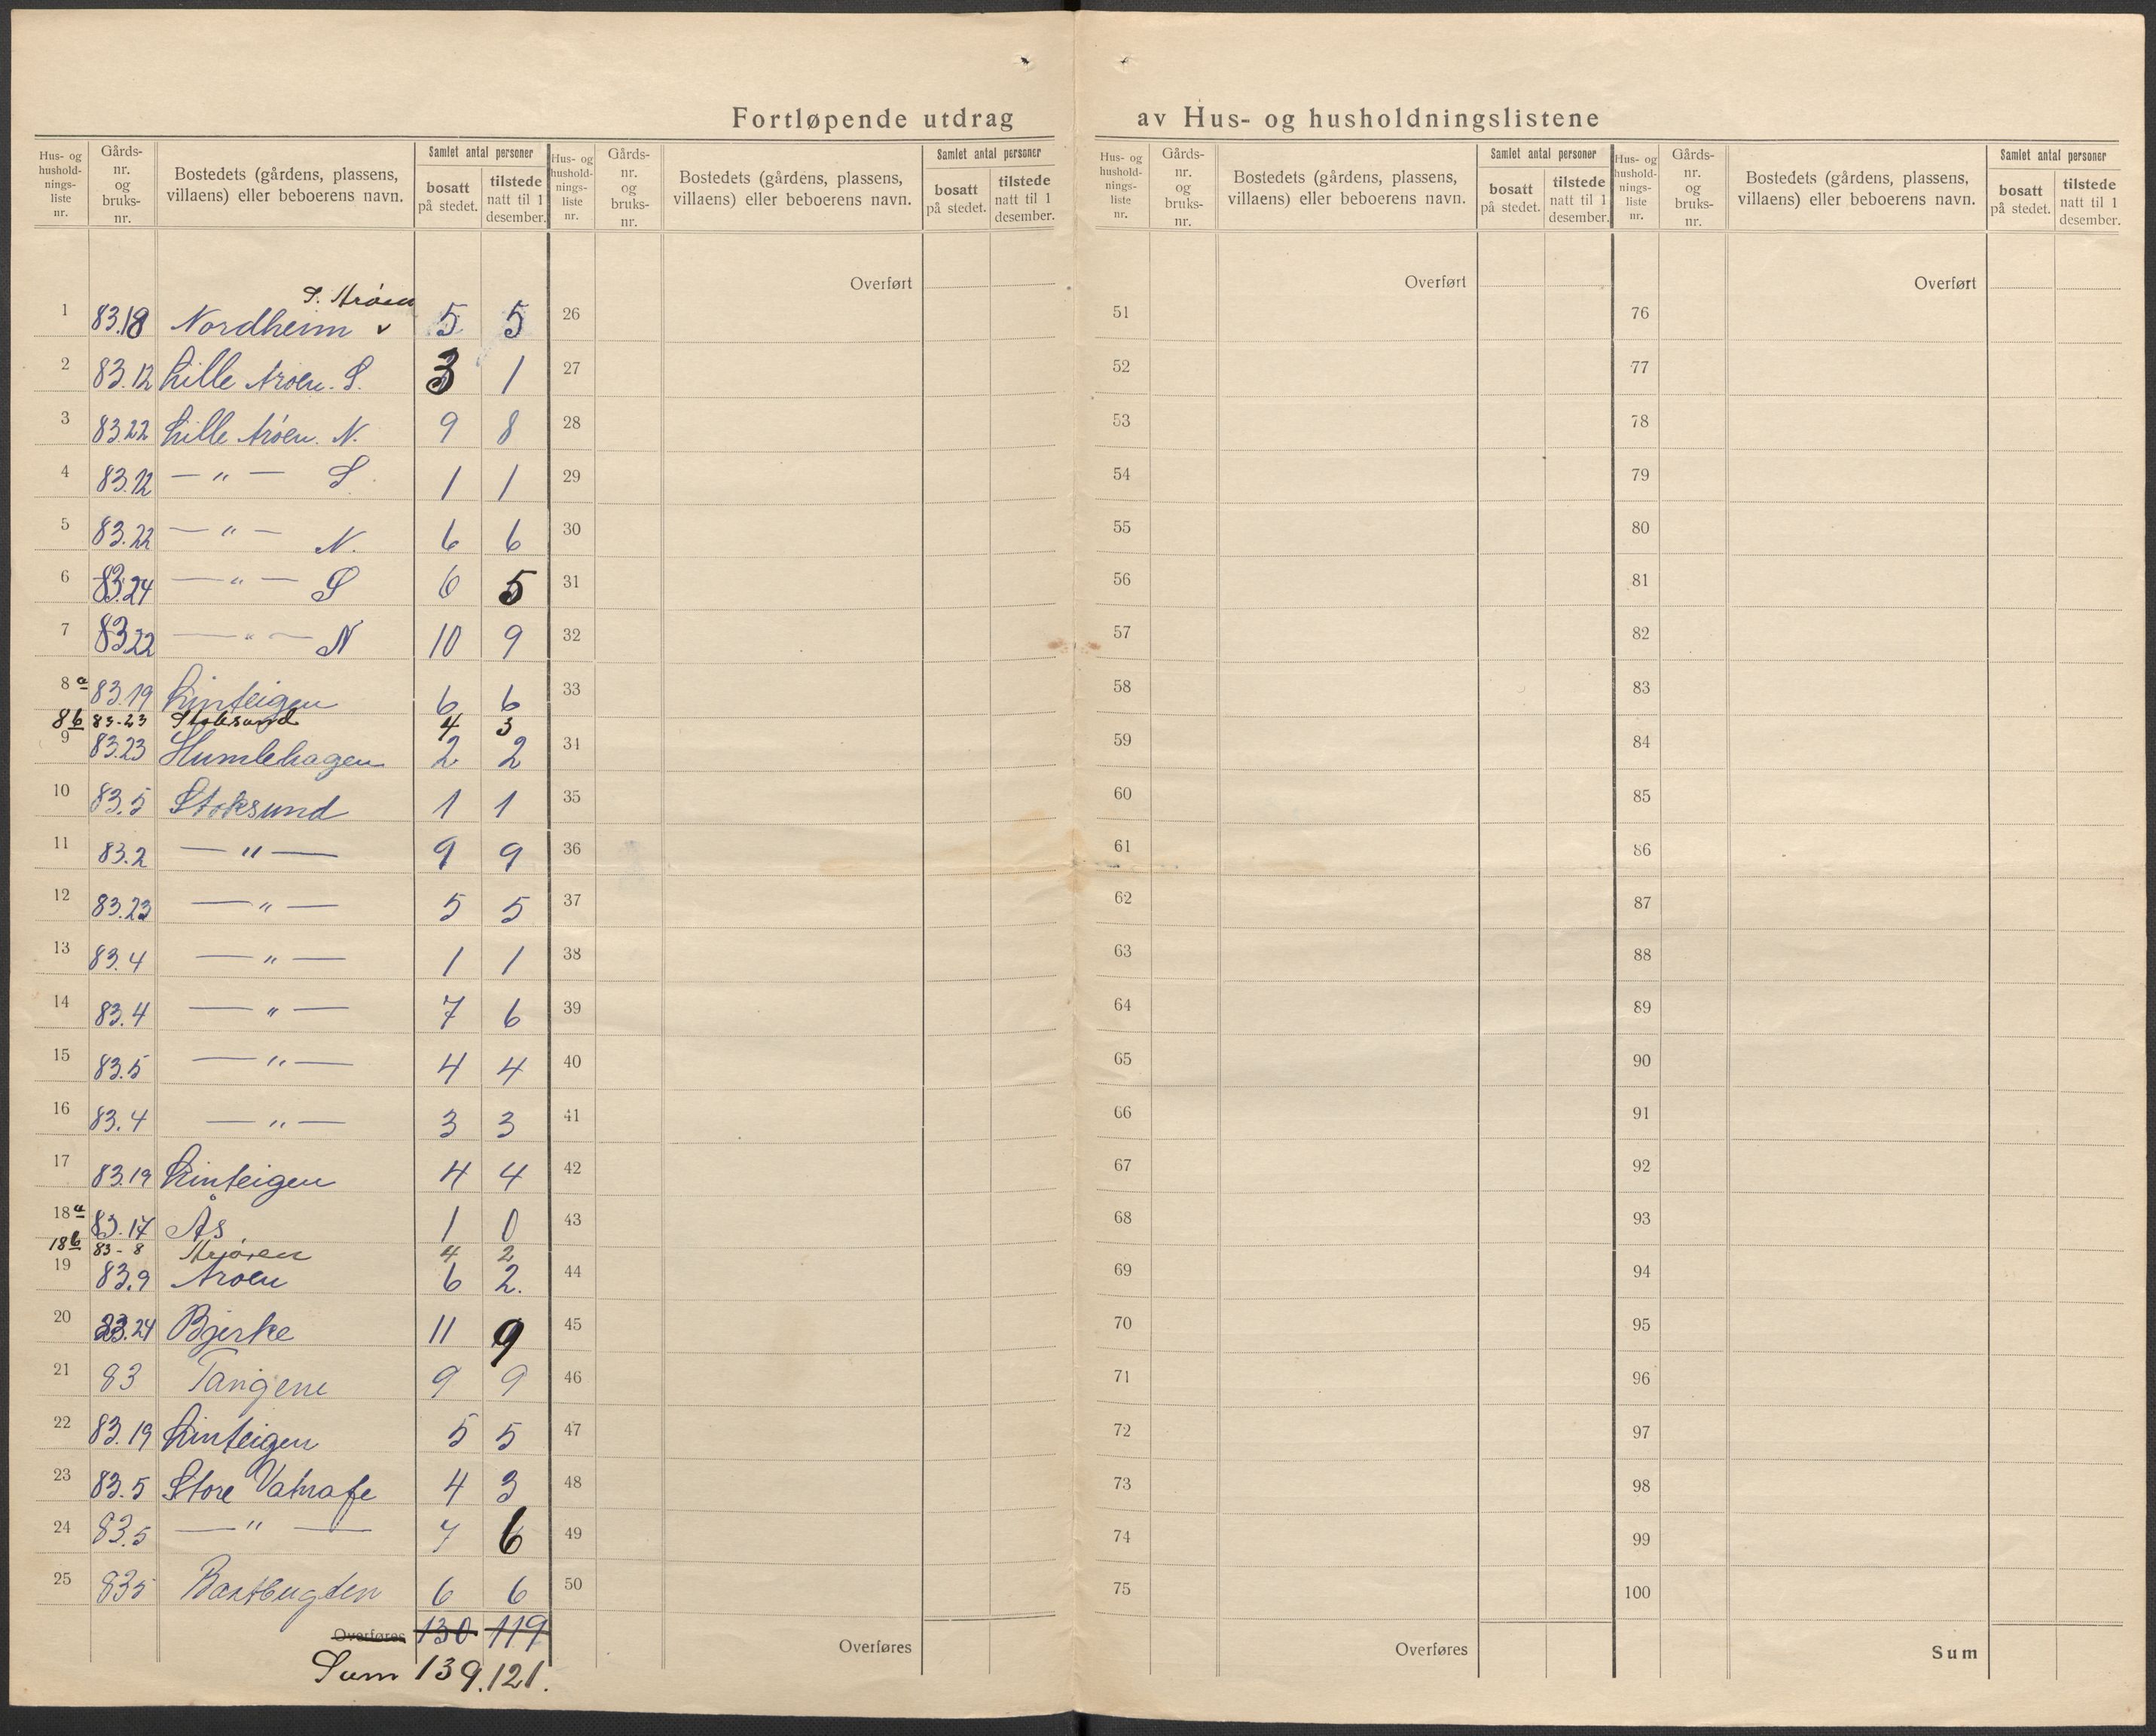 Fortløpende utdrag av Hus- og husholdningslistene
Hus- og hushold- nings- liste nr. Gårds- nr. og bruks- nr. Bostedets (gårdens, plassens, villaens) eller beboerens navn. Samlet antal personer bosatt på stedet. tilstede natt til 1 desember.
Hus- og hushold- nings- liste nr. Gårds- nr. og bruks- nr. Bostedets (gårdens, plassens, villaens) eller beboerens navn. Samlet antal personer bosatt på stedet. tilstede natt til 1 desember.
Hus- og hushold- nings- liste nr. Gårds- nr. og bruks- nr. Bostedets (gårdens, plassens, villaens) eller beboerens navn. Samlet antal personer bosatt på stedet. tilstede natt til 1 desember.
Hus- og hushold- nings- liste nr. Gårds- nr. og bruks- nr. Bostedets (gårdens, plassens, villaens) eller beboerens navn. Samlet antal personer bosatt på stedet. tilstede natt til 1 desember.
S. Arøen
1 83.18 Nordheim v 5 5
2 83.12 Lille Arøen. S. 3 1
3 83.22 Lille Arøen. N. 9 8
4 83.12 — " — S. 1 1
5 83.22 — " — N. 6 6
6 83.24 — " — S 6 5
7 83.22 — " — N 10 9
8 a 83.19 Linteigen 6 6
8 b 83-23 Stoksund 4 3
9 83.23 Humlehagen 2 2
10 83.5 Stoksund 1 1
11 83.2 — " — 9 9
12 83.23 — " — 5 5
13 83.4 — " — 1 1
14 83.4 — " — 7 6
15 83.5 — " — 4 4
16 83.4 — " — 3 3
17 83.19 Linteigen 4 4
18 a 83.17 Ås 1 0
18 b 83-8 4 2
19 83.9 Arøen 6 2.
20 83.24 Bjerke 11 9
21 83 Tangene 9 9
22 83.19 Linteigen 5 5
23 83.5 Store Vatnafe 4 3
24 83.5 — " — 7 6
25 835 6 6
Overføres 130 119
Sum 139. 121.
Overført
26
27
28
29
30
31
32
33
34
35
36
37
38
39
40
41
42
43
44
45
46
47
48
49
50
Overføres
Overført
51
52
53
54
55
56
57
58
59
60
61
62
63
64
65
66
67
68
69
70
71
72
73
74
75
Overføres
Overført
76
77
78
79
80
81
82
83
84
85
86
87
88
89
90
91
92
93
94
95
96
97
98
99
100
Sum